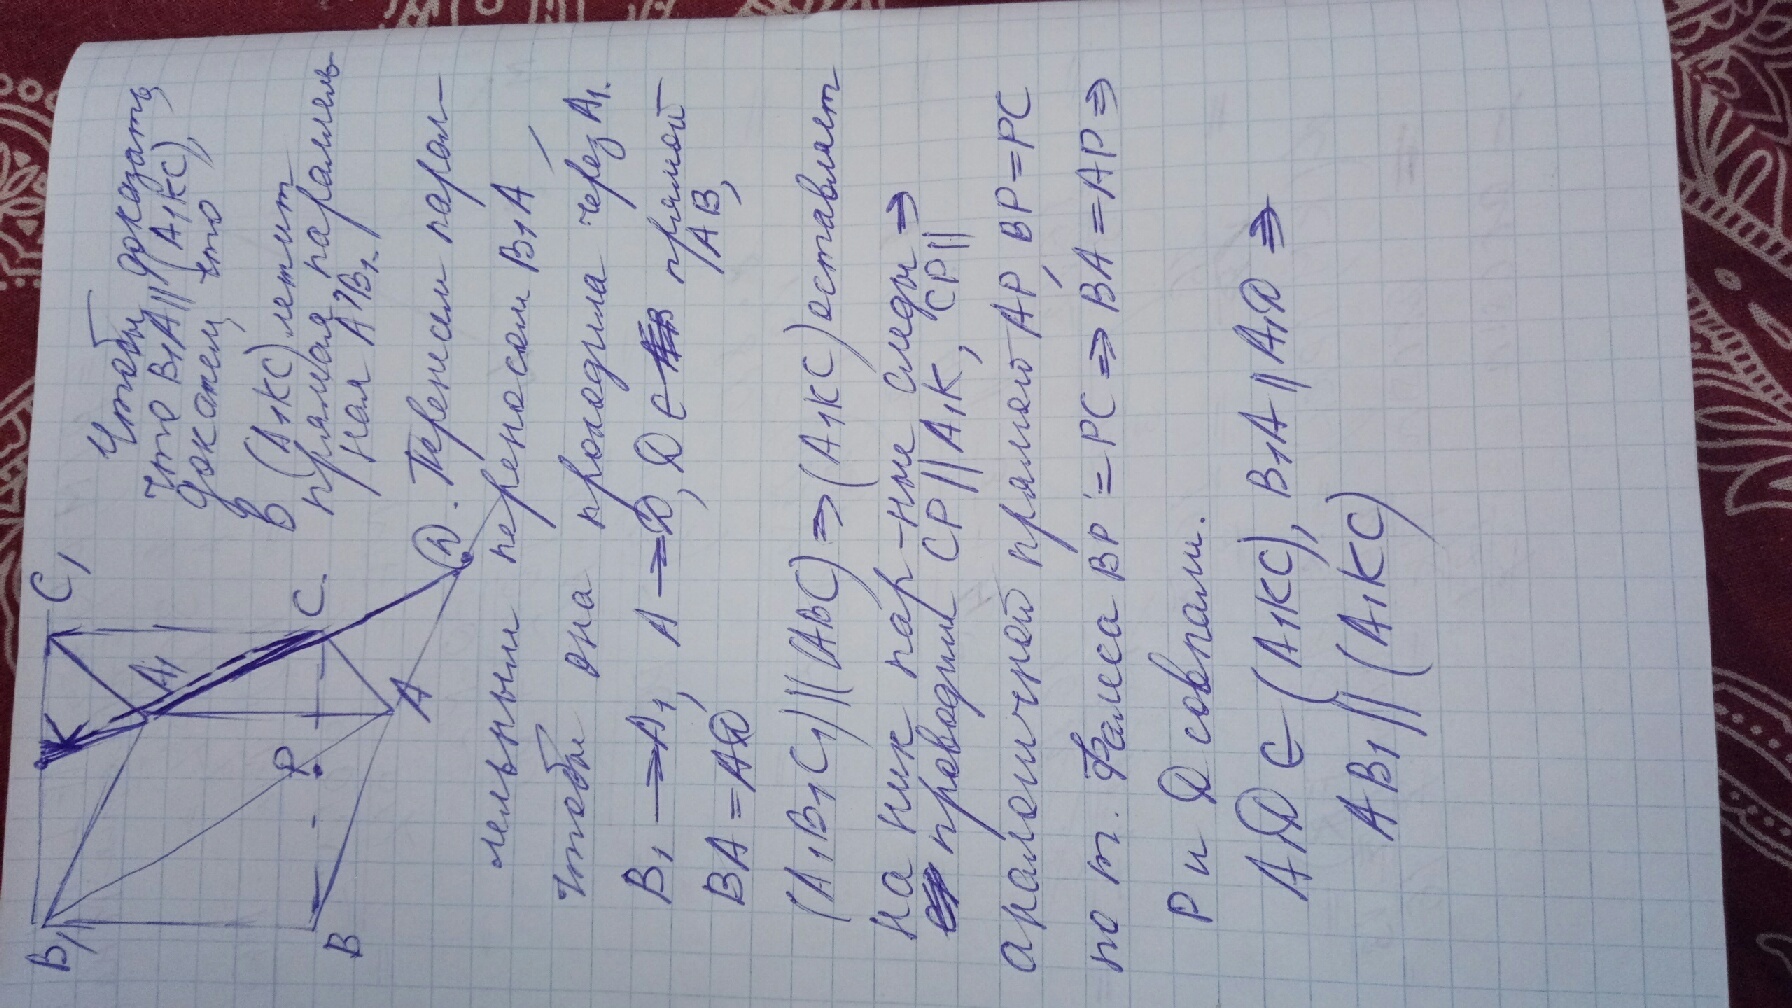 B₁
C₁
K
A₁
C
P
B
A
D
Чтобы доказать,
что B₁A || (A₁KC),
докажем, что
в (A₁KC) лежит
прямая параллель
ная AB₁.
Перенесем парал-
лельным переносом B₁A
чтобы она проходила через A₁.
B₁ → A₁, A → D, D ∈ прямой AB,
BA = AD
(A₁B₁C₁) || (ABC) ⇒ (A₁KC) оставляет
на них пар-ные следы ⇒
проводим CP || A₁K, CP ||
аналоничной прямой AP, BP = PC
по т. Фалеса BP = PC ⇒ BA = AP ⇒
P и D совпали.
A₁D ∈ (A₁KC), B₁A || A₁D ⇒
AB₁ || (A₁KC)